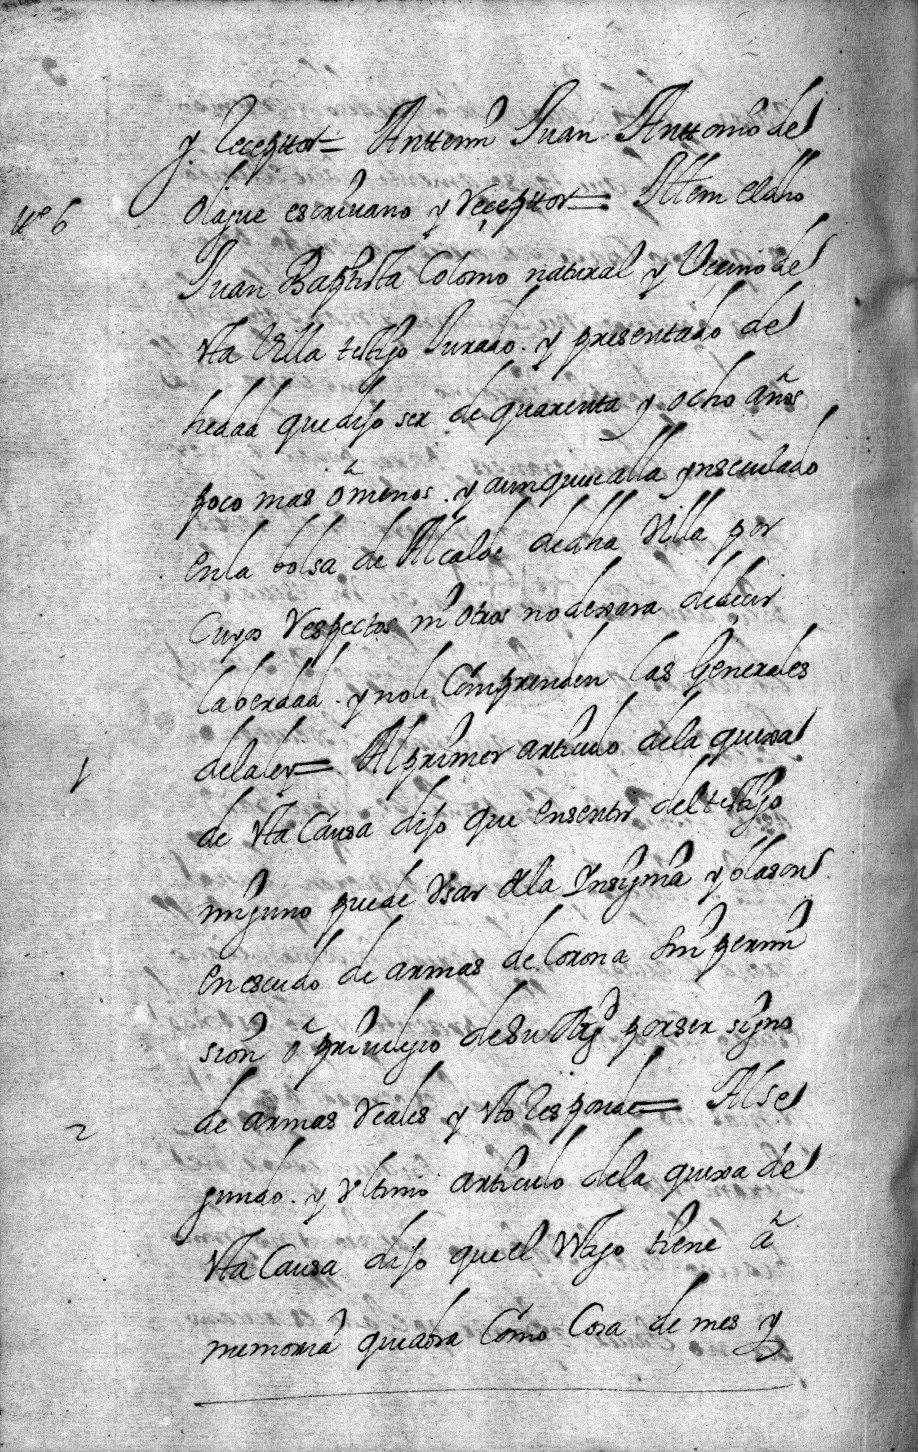 y Receptor = Antemi Juan Antonio de
Olague escrivano y receptor = Ittem el dho
nº 6
Juan Baptista Colomo natural y Vecino de
sta Villa testigo Jurado. y presentado de
hedad que dijo ser de quarenta y ocho años
poco mas ô menos. y aunque se alla ynseculado
en la bolsa de Alcalde de dha Villa por
Cuyos respectos ni otros no dexara de decir
la berdad. y no le Comprenden las Generales
de la ley = Al primer articulo de la quexa
1
de sta Causa dijo que en sentir del testigo
ninguno puede Usar de la Ynsignia y blason
en escudo de armas de Corona sin permi
sion ô privilegio de Su Magd por ser signo
de armas reales y sto responde = Al se
2
gundo. y Ultimo articulo de la quexa de
sta Causa dijo que el testigo tiene â
memoria que abra Como Cosa de mes y